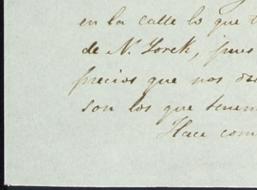 en la calle lo que
de N. Yorck, pues
precios que nos
son los que tenem
Hace com